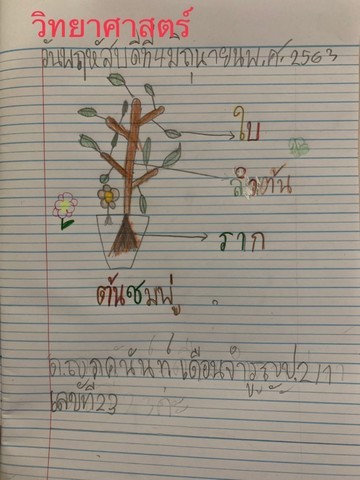 วิทยาศาสตร์
วันพฤหัสบดีที่4มิถุนายนพ.ศ.2563
ใบ
ลำต้น
ราก
ต้นชมพู่
ด.ญ. เดือนจำรูญ ป.2/1
เลขที่23